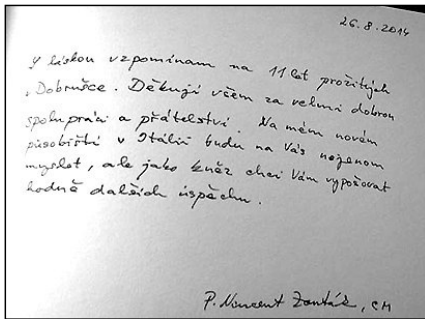 26.8.2014
S láskou vzpomínam na 11 let prožitých
v Dobrušce. Děkuji všem za velmi dobrou
spolupráci a přátelství. Na mém novém
působišti v Itálii budu na Vás nejenom
myslet, ale jako kněz chci Vám vyprošovat
hodně dalších úspěchu.
P. Vincent Zonták, CM